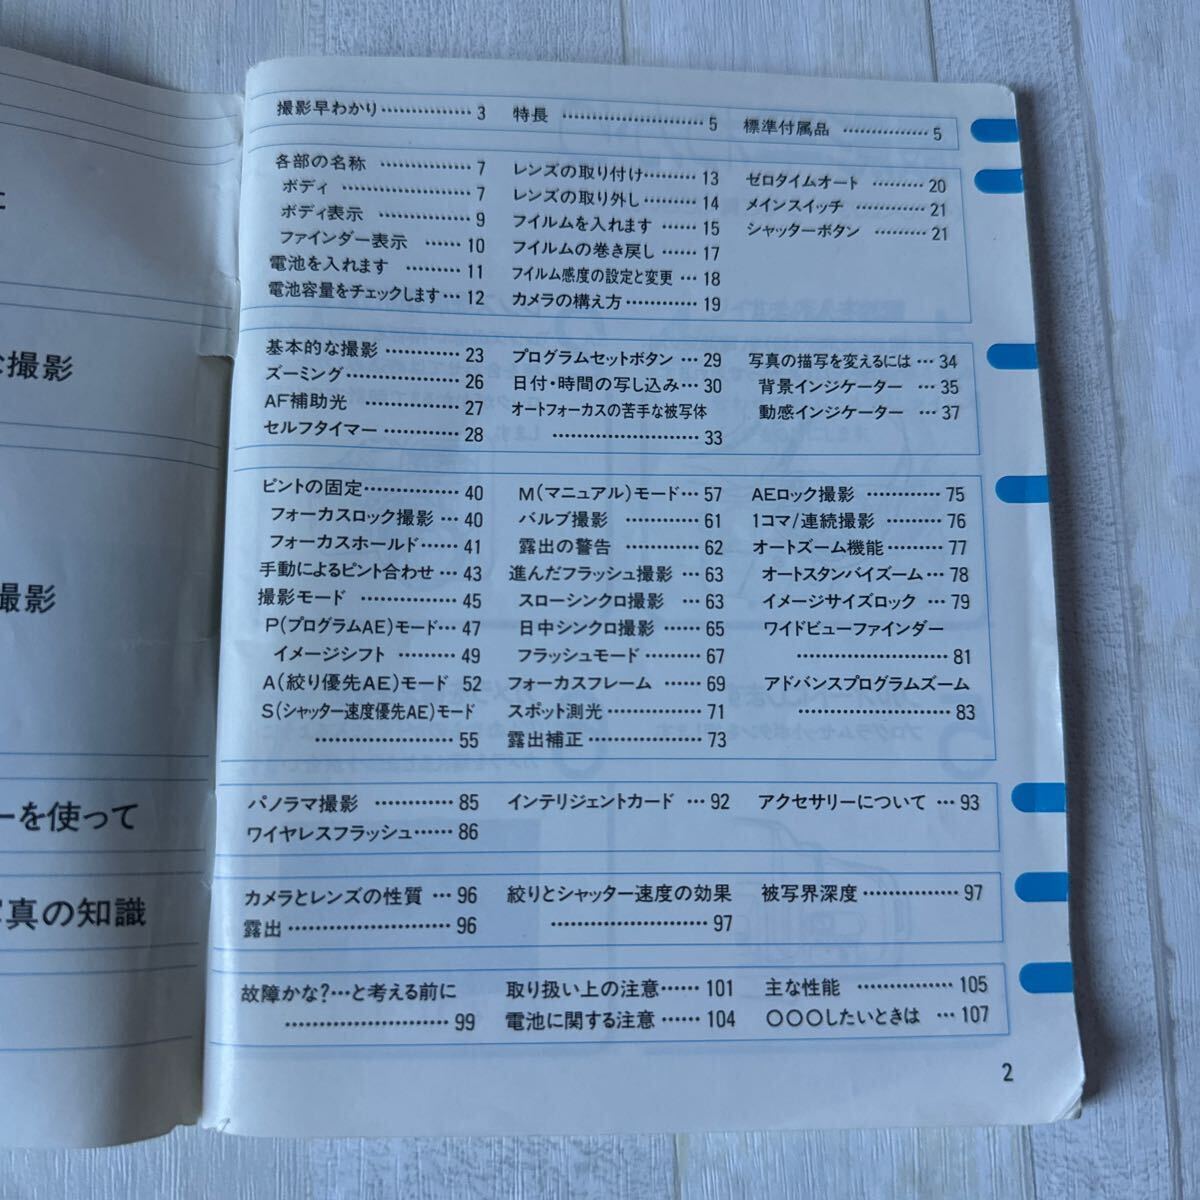 な撮影
撮影
ーを使って
写真の知識
撮影早わかり……………3
特長 ……………………5
標準付属品 ……………5
各部の名称 …………7
ボディ …………………7
ボディ表示 ……………9
ファインダー表示 ……10
電池を入れます ………11
電池容量をチェックします…12
レンズの取り付け………13
レンズの取り外し………14
フイルムを入れます ……15
フイルムの巻き戻し ……17
フイルム感度の設定と変更 …18
カメラの構え方 …………19
ゼロタイムオート ………20
メインスイッチ …………21
シャッターボタン ………21
基本的な撮影 …………23
ズーミング………………26
AF補助光 ……………27
セルフタイマー …………28
プログラムセットボタン …29
日付・時間の写し込み…30
オートフォーカスの苦手な被写体
……………………33
写真の描写を変えるには …34
背景インジケーター …35
動感インジケーター …37
ピントの固定……………40
フォーカスロック撮影 …40
フォーカスホールド……41
手動によるピント合わせ …43
撮影モード ……………45
P(プログラムAE)モード…47
イメージシフト ………49
A(絞り優先AE)モード 52
S(シャッター速度優先AE)モード
……………………55
M(マニュアル)モード…57
バルブ撮影 …………61
露出の警告 …………62
進んだフラッシュ撮影 …63
スローシンクロ撮影 …63
日中シンクロ撮影 ……65
フラッシュモード………67
フォーカスフレーム ……69
スポット測光……………71
露出補正 ………………73
AEロック撮影 …………75
1コマ/連続撮影 ………76
オートズーム機能………77
オートスタンバイズーム…78
イメージサイズロック …79
ワイドビューファインダー
……………………81
アドバンスプログラムズーム
……………………83
パノラマ撮影 …………85
ワイヤレスフラッシュ……86
インテリジェントカード …92
アクセサリーについて …93
カメラとレンズの性質 …96
露出………………………96
絞りとシャッター速度の効果
……………………97
被写界深度……………97
故障かな?…と考える前に
……………………99
取り扱い上の注意……101
電池に関する注意……104
主な性能 ……………105
○○○したいときは …107
2